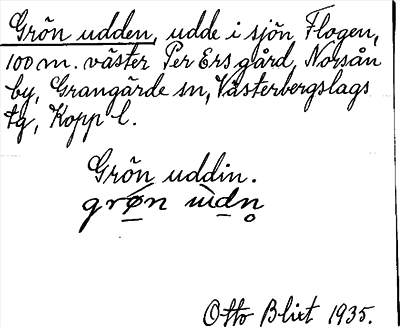 Grön udden, udde i sjön Flogen,
100 m. väster Per Ers gård, Norsån
by, Grangärde sn, Västerbergslags
tg, Kopp l.
Grön uddin.
grø̲n ùd̲n̥
Otto Blixt 1935.